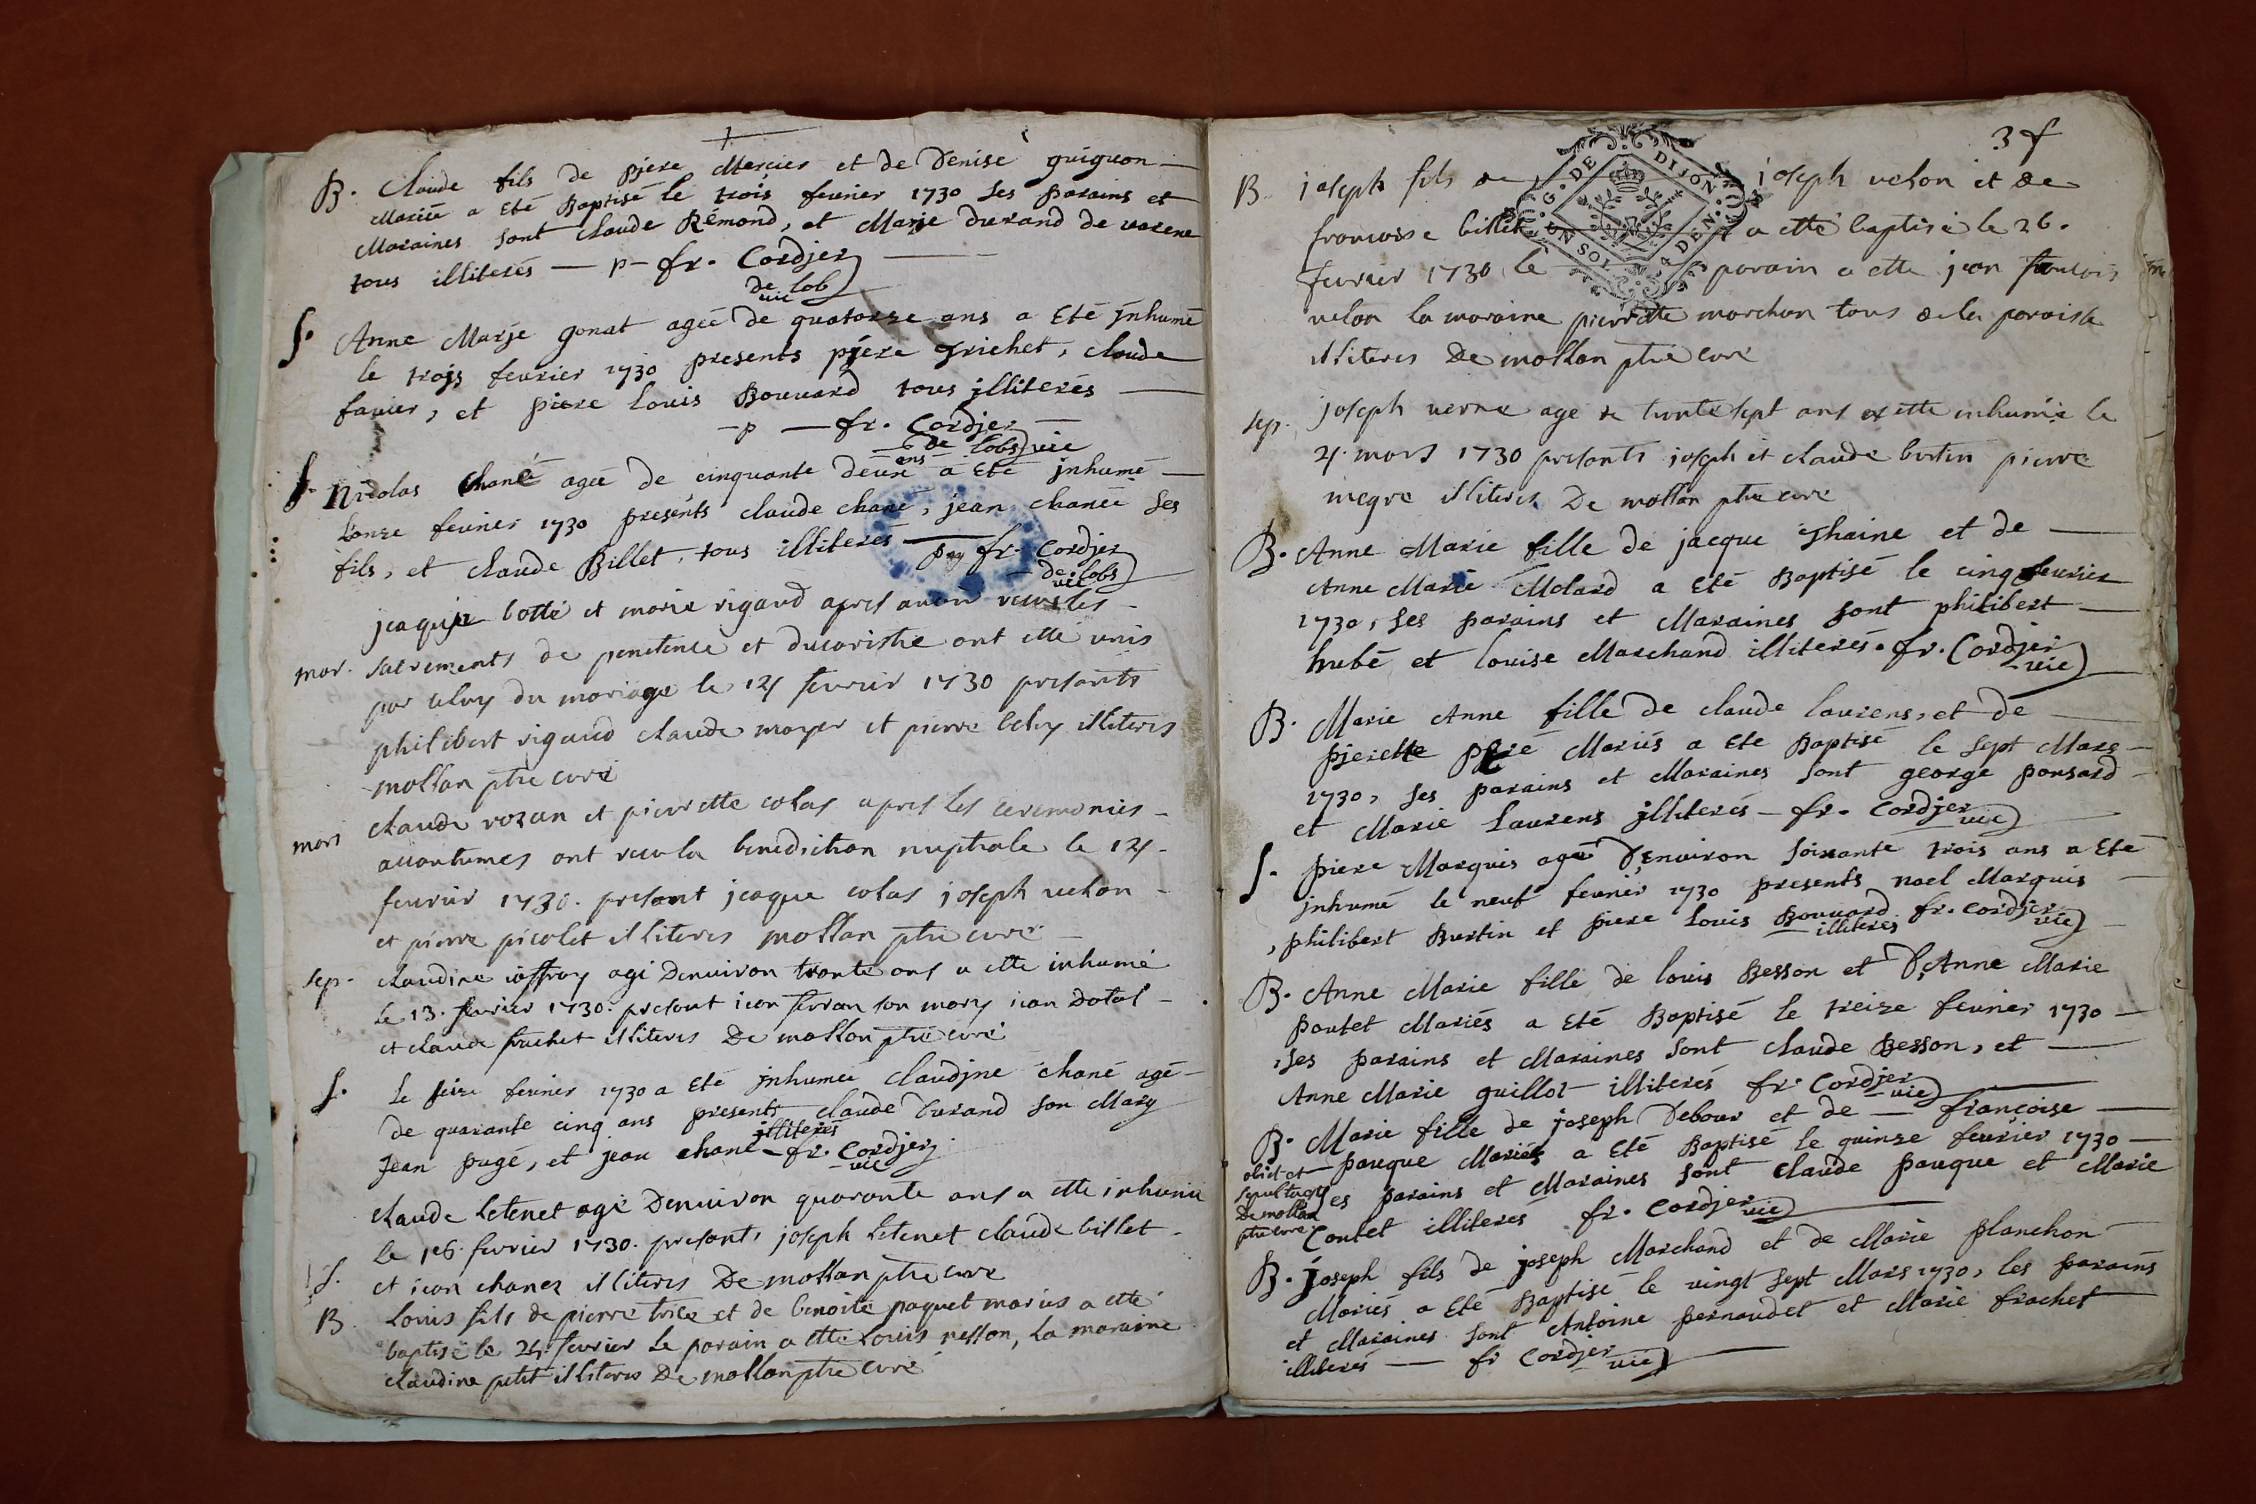 B. Claude fils de pjere Mercier et de Denise guiguon
Mariés a Eté Baptisé le trois feurier 1730 Ses Parains et
Maraines Sont Claude Rémond, et Marje Durand de varene
tous illiterés — p — fr. Cordjer
de lob
vic
S. Anne Marje gonat ageé de quatorze ans a Eté jnhumé
le trojs feurier 1730 presents pjere Trichet, Claude
fauier, et piere Louis Bouuard tous jlliterés
— p — fr. Cordjer
de Lobs vic
S. Nicolas Chané ageé de cinquante deux ans a Eté jnhumé
Lonze feurier 1730 presents Claude chané, jean chaneé Ses
fils, et Claude Billet, tous illiterés — p fr. Cordjer
de Lobs
vic
jcaque botté et marie rigaud apres auoir receu les
mar. sacrements de penitence et ducaristie ont etté unis
par celuy du mariage le 14 feurier 1730 presants
philibert rigaud claude mayer et pierre illiteres
mollan ptre curé
mari claude rozan et pierrette colas apres les ceremonies
accoutumes ont receu la benediction nuptiale le 14
feurier 1730. presant jcaque colas joseph uelon
et pierre picolet illiteres mollan ptre curé
sep. claudine ioffray agé Denuiron trante ans a etté inhumé
le 13. feurier 1730. presant iean ferran son mary iean dotal
et claude frachet illiteres De mollan ptre curé
S. Le seize feurier 1730 a Eté jnhumeé Claudjne chané agé
de quarante cinq ans presents Claude Durand Son Mary
Jean pagé, et jean chané jlliterés fr. Cordjer
vic
claude letenet agé Denuiron quarante ans a etté inhumé
le 16. feurier 1730. presants joseph letenet claude billet
S. et iean chanez illiteres De mollan ptre curé
B. Louis fils de pierre et de benoite paquet maries a etté
baptisé le 24. feurier le parain a etté Louis nesson, La maraine
claudine petit illiteres De mollan ptre curé
3 f
G. DE DIJON
ENSOL 4 DEN.
B. joseph fils de joseph uelon et de
francoise billet a etté baptisé le 26.
feurier 1730 le parain a etté jean francois
uelon la maraine pierrette marchan tous de la paroisse
illiteres De mollan ptre curé
sep. joseph uerne agé de trante sept ans a etté inhumé le
4. mars 1730 presants joseph et claude burtin pierre
megre illiteres De mollan ptre curé
B. Anne Marie fille de jacque Thaine et de
Anne Marie Molard a Eté Baptisé le cinq feurier
1730, Ses parains et Maraines Sont philibert
hubé et Louise Marchand illiterés. fr. Cordjer
vic
B. Marie Anne fille de Claude Laurens, et de
Pjerette Mariés a Eté Baptisé le Sept Mars
1730, Ses parains et Maraines Sont george ponsard
et Marie Laurens jlliterés — fr. Cordjer
vic
S. Piere Marquis ageé D'enuiron Soixante trois ans a Eté
jnhumé le neuf feurier 1730 presents noel Marquis
, philibert Burtin et piere Louis Bouuard fr. Cordjer
illiterés vic
B. Anne Marie fille de Louis Besson et D'Anne Marie
poutet Mariés a Eté Baptisé le treize feurier 1730
, Ses parains et Maraines Sont Claude Besson, et
Anne Marie guillot illiterés fr. Cordjer
vic
B. Marie fille de joseph Debour et de — françoise
pauque Mariés a Eté Baptisé le quinze feurier 1730
obiit et
sepulta
De mollan
ptre curé
es parains et Maraines Sont Claude pauque et Marie
Coutet illiterés fr. Cordjer
vic
B. Joseph fils de joseph Marchand et de Marie planchon
Mariés a Eté Baptisé le vingt Sept Mars 1730, les parains
et Maraines Sont Antoine pernaudet et Marie frachet
illiterés — fr Cordjer
vic